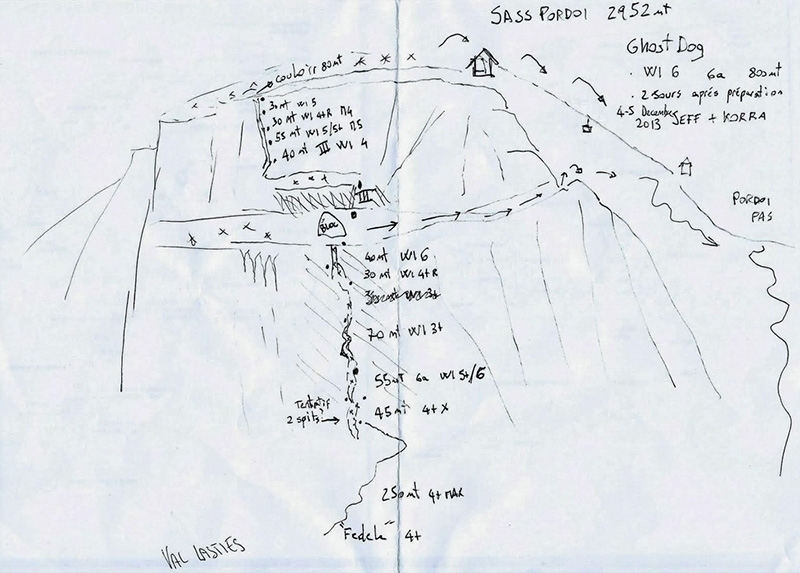 SASS PORDOI 2952 mt
Ghost Dog
. WI 6 6a 800mt
. 2 Jours aprés préparation
4-5 December 2013 JEFF + KORRA
couloir 80mt
30mt WI 5
30mt WI 4+R M4
55mt WI 5/5+ M5
40mt III WI 4
III
BLOC
PORDOI
PAS
40mt WI 6
30 mt WI 4+R
70 mt WI 3+
55mt 6a WI 5+/6
Tentatif
2 spits
45mt 4+X
250mt 4+ MAX
"Fedele" 4+
VAL LASTIES